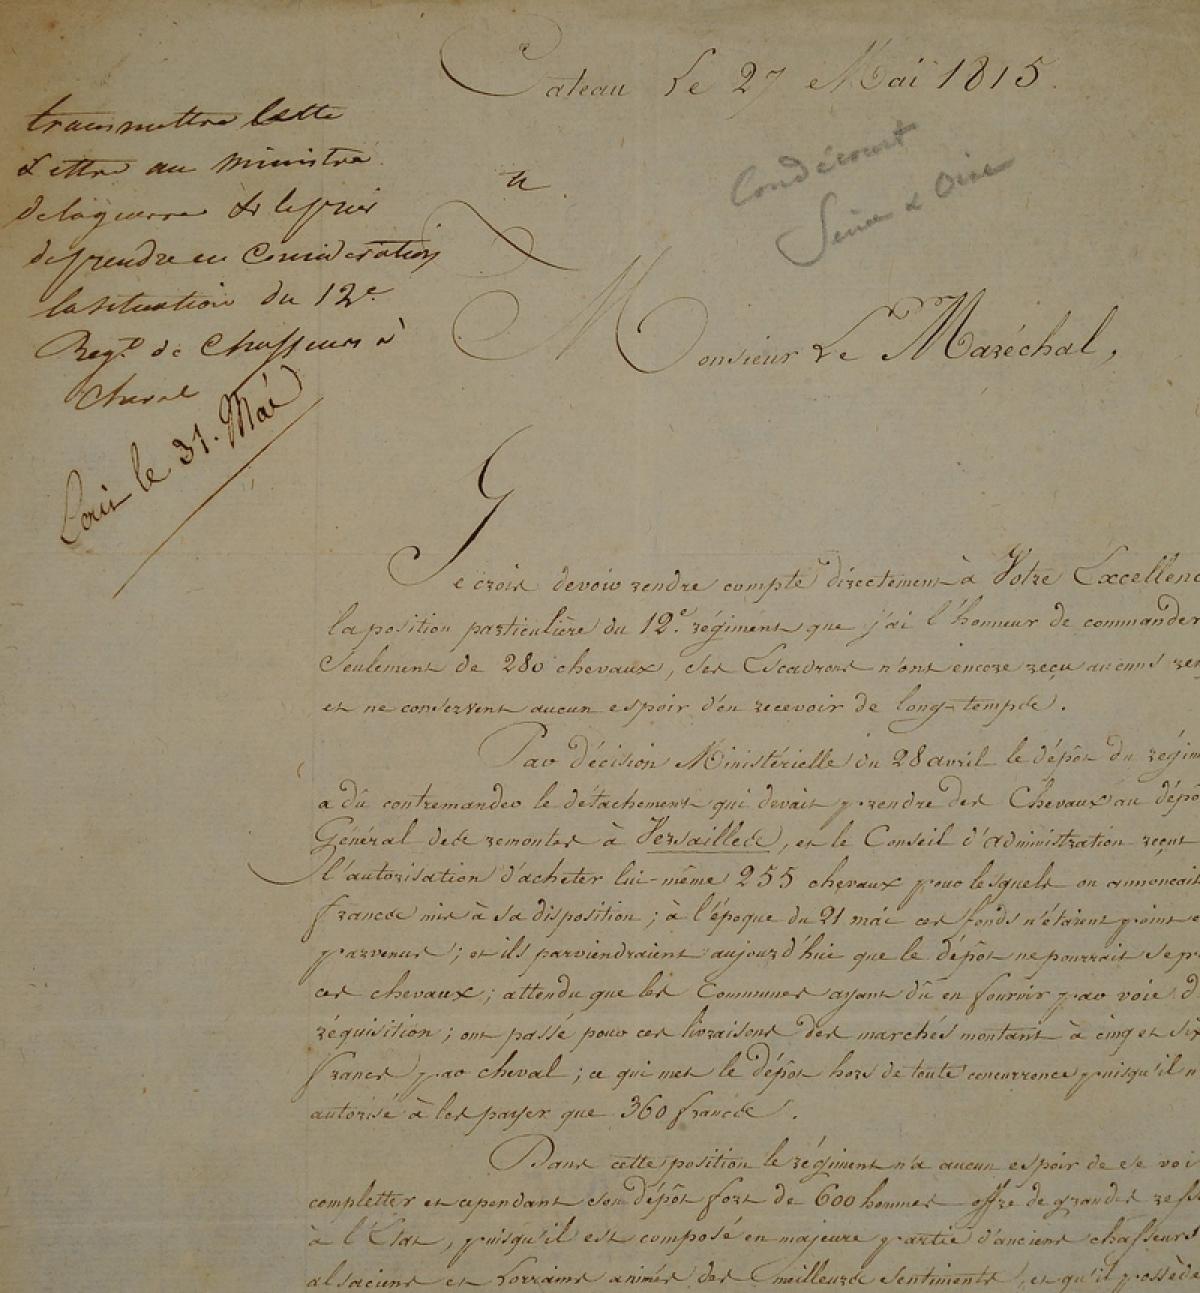 Cateau Le 27 Mai 1815.
transmettre cette
Lettre au ministre
de la guerre & le prier
de prendre en Consideration
la situation du 12e.
Regt. de Chasseurs à
Cheval
Ecrit le 31. Mai
Condécourt
Seine & Oise
Monsieur Le Maréchal,
Je crois devoir rendre compte directement à Votre Excellenc
la position particulière du 12e. régiment que j'ai l'honneur de commander
Seulement de 280 chevaux, ses Escadrons n'ont encore reçu aucuns ren
et ne conservent aucun espoir d'en recevoir de long-temps.
Par décision Ministérielle du 28 avril le dépôt du régim
a dû contremander le détachement qui devait prendre des Chevaux au dépô
Général des remontes à Versailles, et le Conseil d'administration reçut
l'autorisation d'acheter lui-même 255 chevaux pour lesquels on annonçait
francs mis à sa disposition ; à l'époque du 21 mai ces fonds n'étaient point e
parvenus ; et ils parviendraient aujourd'hui que le dépôt ne pourrait se pr
ces chevaux ; attendu que les Communes ayant dû en fournir par voie d
réquisition ; ont passé pour ces livraisons des marchés montant à cinq et six
francs par cheval ; ce qui met le dépôt hors de toute concurrence puisqu'il n
autorisé à les payer que 360 francs.
Dans cette position le régiment n'a aucun espoir de se voi
completter et cependant son dépôt fort de 600 hommes offre de grandes ress
à l'Etat, puisqu'il est composé en majeure partie d'anciens chasseurs
alsaciens et Lorrains animés des meilleurs sentiments, et qu'il possède